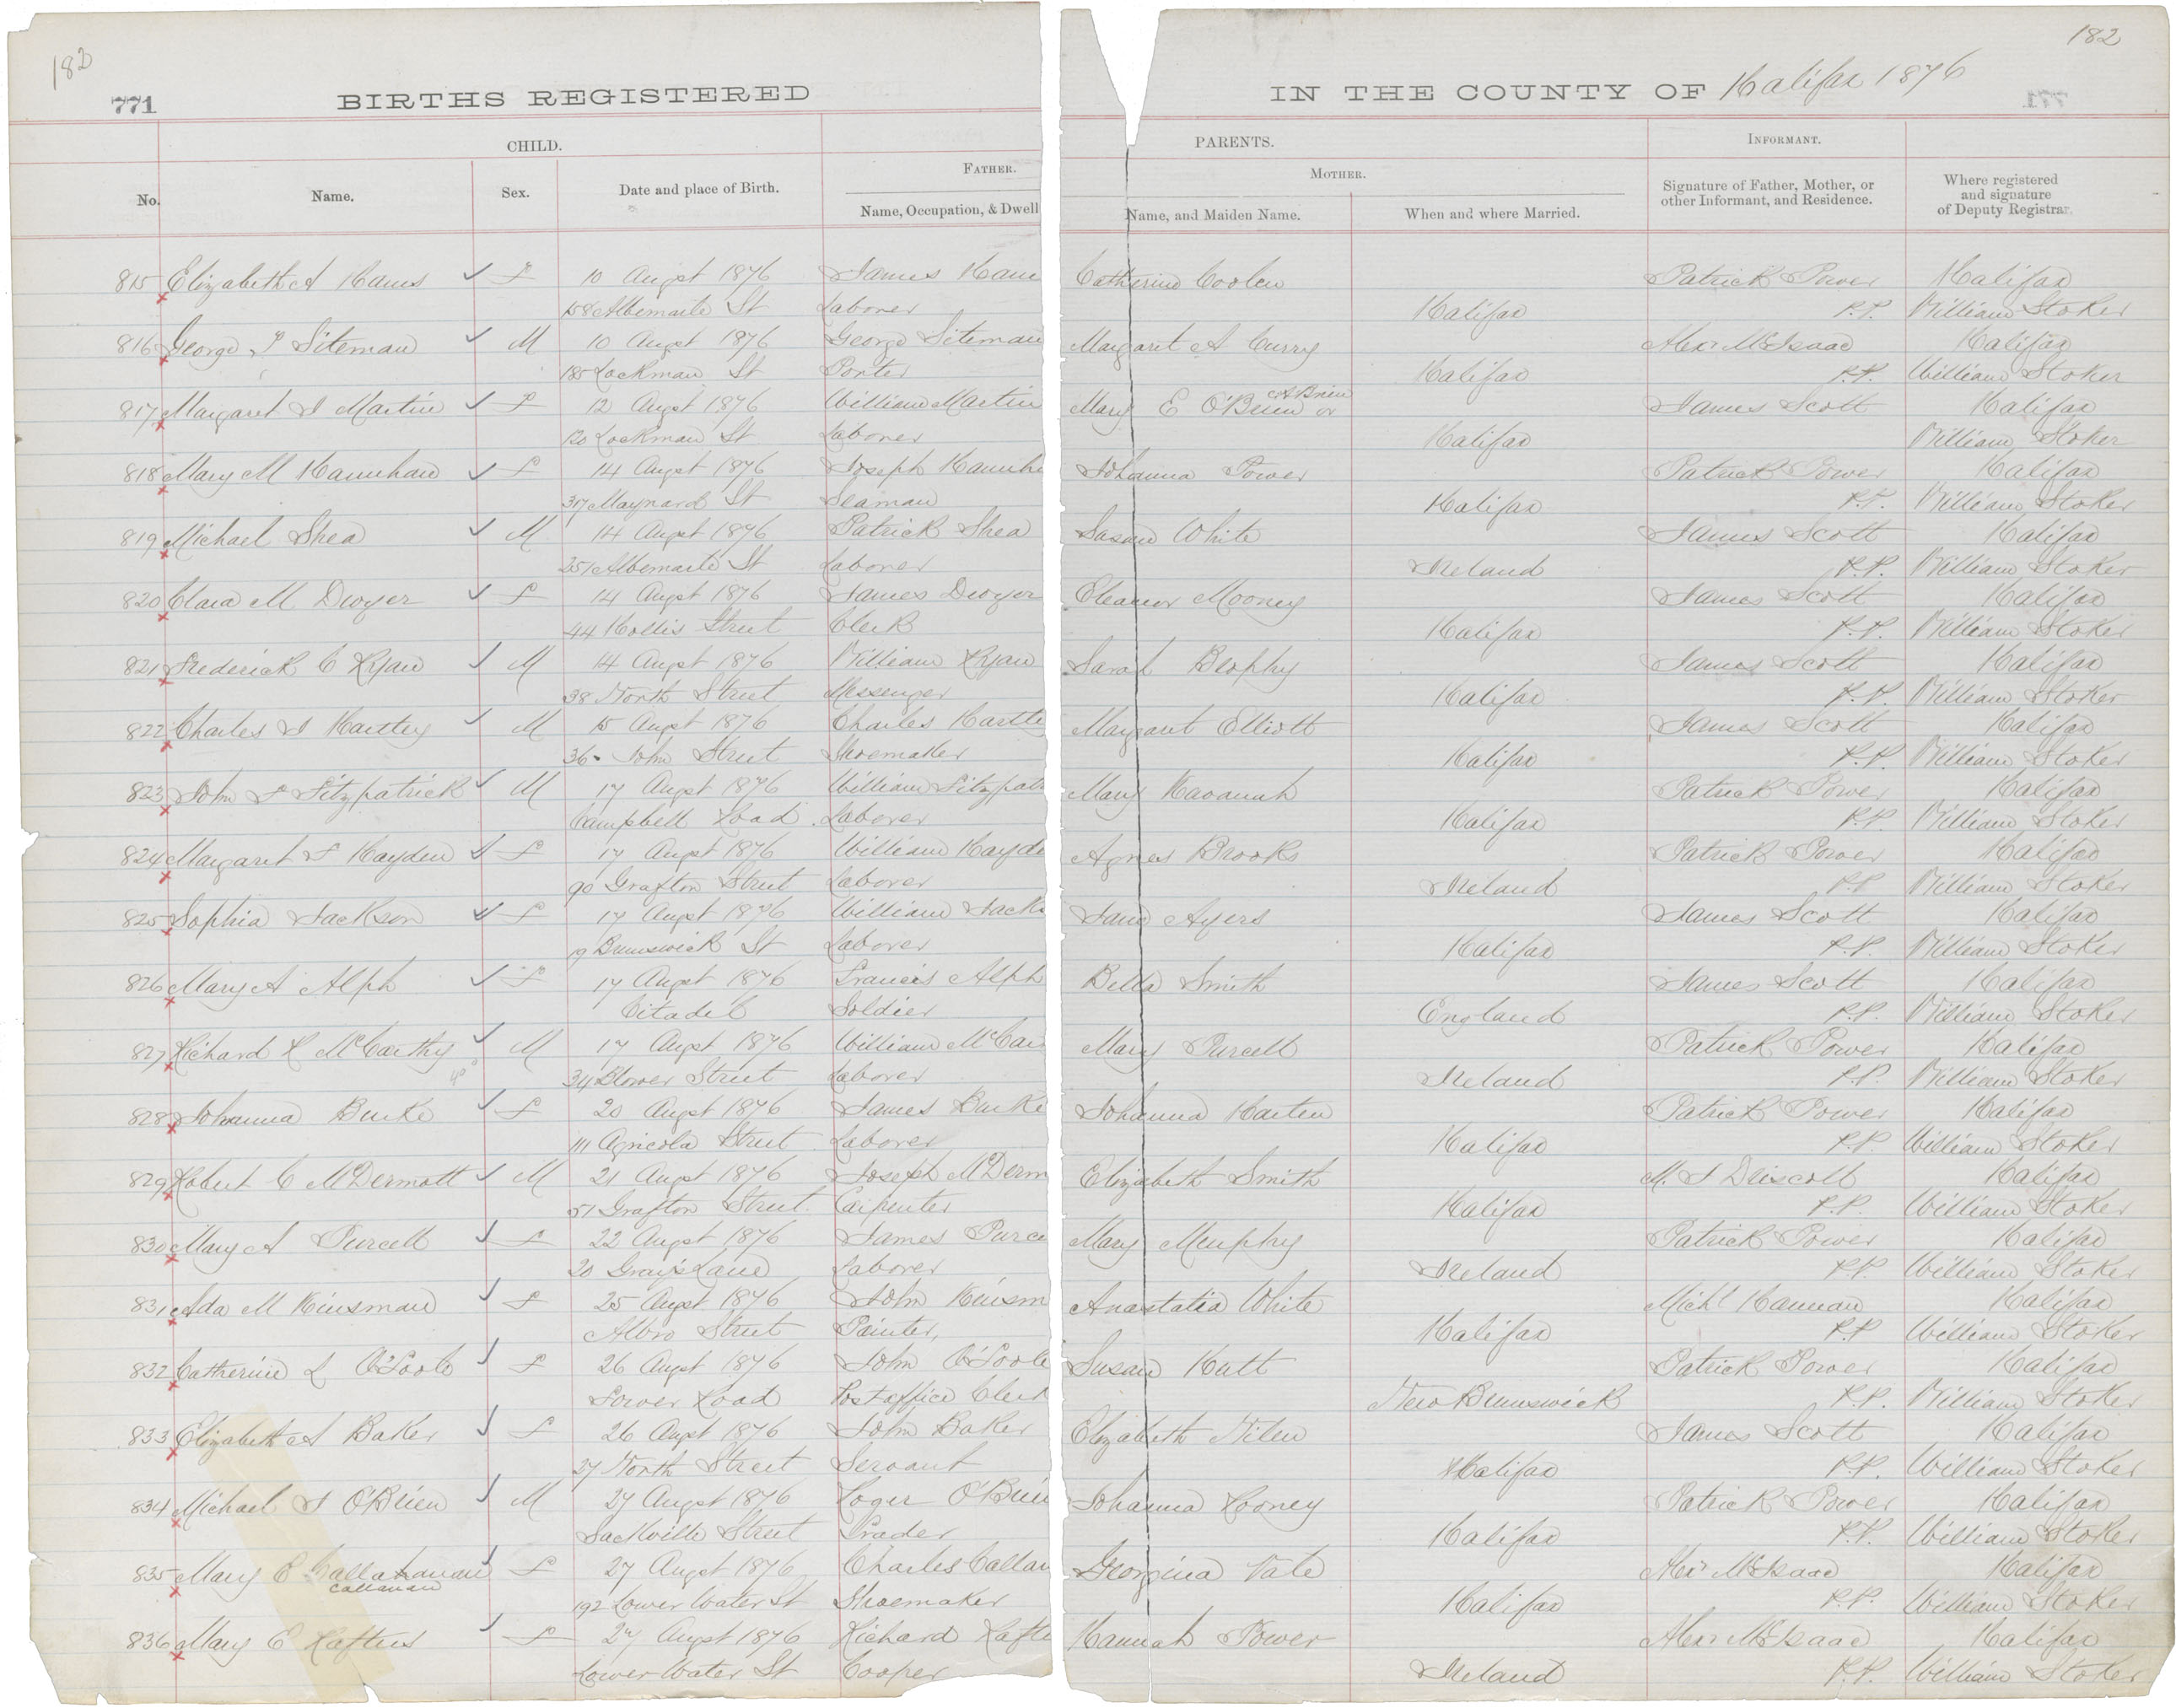 182
182
771
BIRTHS REGISTERED
IN THE COUNTY OF Halifax 1876
CHILD.
PARENTS.
INFORMANT.
FATHER.
MOTHER.
No. Name. Sex. Date and place of Birth. Name, Occupation, & Dwell Name, and Maiden Name. When and where Married. Signature of Father, Mother, or other Informant, and Residence. Where registered and signature of Deputy Registrar.
815 Elizabeth A Hams f 10 Augst 1876 James Ham Catherine Coolen Patrick Power Halifax
158 Albemarle St Laborer Halifax P.P. William Stoker
816 George P Siteman M 10 Augst 1876 George Siteman Margaret A Curry Alexr McIsaac Halifax
185 Lockman St Porter Halifax P.P. William Stoker
817 Margaret J Martin f 12 Augst 1876 William Martin Mary E O'Brien or James Scott Halifax
120 Lockman St Laborer Halifax William Stoker
818 Mary M f 14 Augst 1876 Joseph Johanna Power Patrick Power Halifax
317 Maynard St Seaman Halifax P.P. William Stoker
819 Michael Shea M 14 Augst 1876 Patrick Shea Susan White James Scott Halifax
251 Albemarle St Laborer Ireland P.P. William Stoker
820 Clara M Dwyer f 14 Augst 1876 James Dwyer Eleanor Mooney James Scott Halifax
44 Hollis Street Clerk Halifax P.P. William Stoker
821 Frederick C Ryan M 14 Augst 1876 William Ryan Sarah Brophy James Scott Halifax
38 North Street Messenger Halifax P.P. William Stoker
822 Charles J Hartley M 15 Augst 1876 Charles Hartle Margaret Elliott James Scott Halifax
36 John Street Shoemaker Halifax P.P. William Stoker
823 John F Fitzpatrick M 17 Augst 1876 William Fitzpatr Mary Kavanah Patrick Power Halifax
Campbell Road Laborer Halifax P.P. William Stoker
824 Margaret F Hayden f 17 Augst 1876 William Hayde Agnes Brooks Patrick Power Halifax
90 Grafton Street Laborer Ireland P.P. William Stoker
825 Sophia Jackson f 17 Augst 1876 William Jacks Jane Ayers James Scott Halifax
19 Brunswick St Laborer Halifax P.P. William Stoker
826 Mary A Alph f 17 Augst 1876 Francis Alph Bella Smith James Scott Halifax
Citadel Soldier England P.P. William Stoker
827 Richard H McCarthy M 17 Augst 1876 William McCar Mary Purcell Patrick Power Halifax
34 Blower Street Laborer Ireland P.P. William Stoker
828 Johanna Burke f 20 Augst 1876 James Burke Johanna Harten Patrick Power Halifax
111 Agricola Street Laborer Halifax P.P. William Stoker
829 Robert C McDermott M 21 Augst 1876 Joseph McDerm Elizabeth Smith M. J Driscoll Halifax
51 Grafton Street. Carpenter Halifax P.P. William Stoker
830 Mary A Purcell f 22 Augst 1876 James Purce Mary Murphy Patrick Power Halifax
20 Gray's Lane Laborer Ireland P.P. William Stoker
831 Ada M Kinsman f 25 Augst 1876 John Kinsm Anastatia White Michl Hannan Halifax
Albro Street Painter, Halifax P.P. William Stoker
832 Catherine L O'Toole f 26 Augst 1876 John O'Toole Susan Hutt Patrick Power Halifax
Tower Road Post office Clerk New Brunswick P.P. William Stoker
833 Elizabeth A Baker f 26 Augst 1876 John Baker Elizabeth James Scott Halifax
27 North Street Servant Halifax P.P. William Stoker
834 Michael J O'Brien M 27 Augst 1876 Roger O'Brie Johanna Rooney Patrick Power Halifax
Sackville Street Trader Halifax P.P. William Stoker
835 Mary E Callahanan f 27 Augst 1876 Charles Callan Georgina Vate Alexr McIsaac Halifax
Callanan
192 Lower Water St Shoemaker Halifax P.P. William Stoker
836 Mary E Laftus f 27 Augst 1876 Richard Lafte Hannah Power Alexr McIsaac Halifax
Lower Water St Cooper Ireland P.P. William Stoker